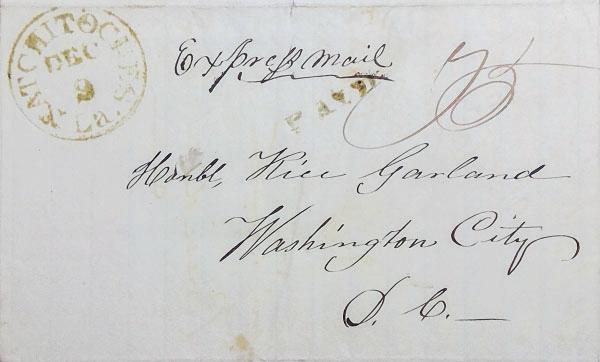 NATCHITOCHES La.
DEC
9
Express Mail
PAID
75
Honbl, Rice Garland
Washington City
D. C.